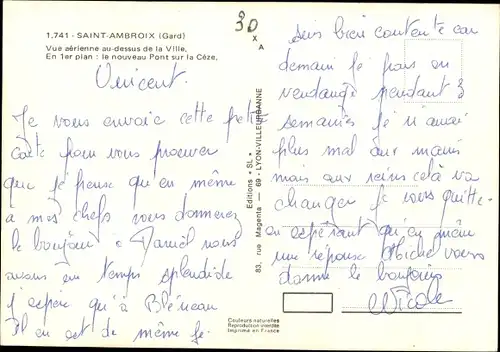 1.741 - SAINT-AMBROIX (Gard)
Vue aérienne au-dessus de la Ville,
En 1er plan : le nouveau Pont sur la Cèze,
30
X
A
Vincent.
Je vous envoie cette petite
carte pour vous prouver
que je pense qu'en même
a mes chefs vous donnerez
le bonjour a Daniel nous
avons un temps splendide
j'espère qu'à Bléneau
il en est de même je
Editions "SL"
83, rue Magenta — 69 - LYON-VILLEURBANNE
suis bien contente car
demain je pars en
vendange pendant 3
semaines je n'aurai
plus mal aux mains
mais aux reins celà va
changer je vous quitte
en espérant qu'en même
une réponse Michel vous
donne le bonjour
Nicole
Couleurs naturelles
Reproduction interdite
Imprimé en France